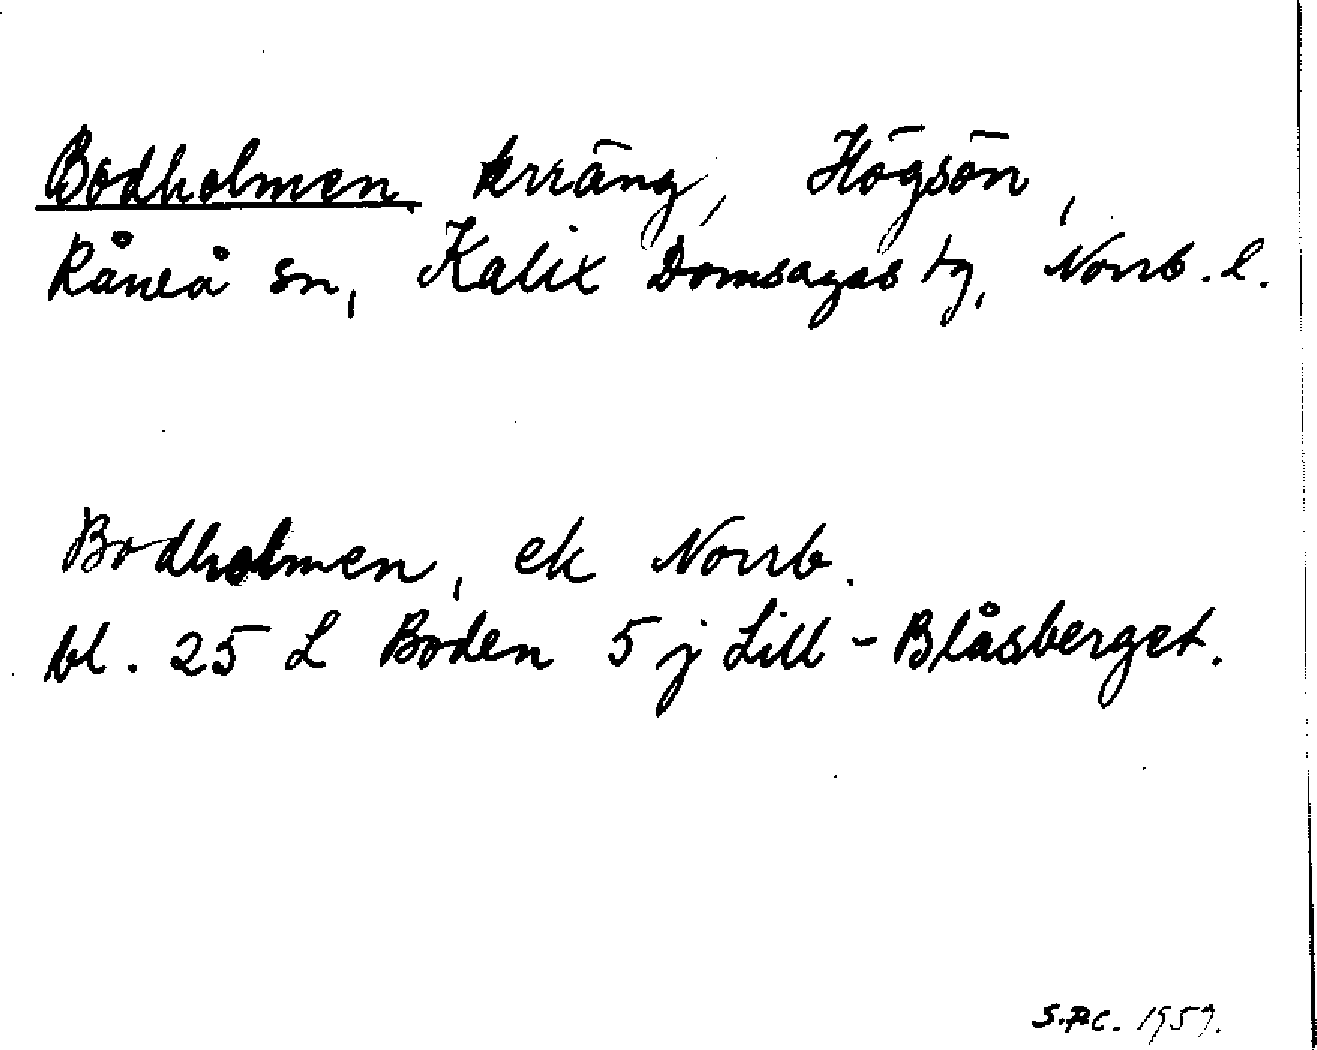 Bodholmen, krräng, Högsön,
Råneå sn, Kalix Domsagas tg, Norrb. l.
Bodholmen, ek Norrb.
bl. 25 L Boden 5 j Lill-Blåsberget.
S.P.C. 1957.